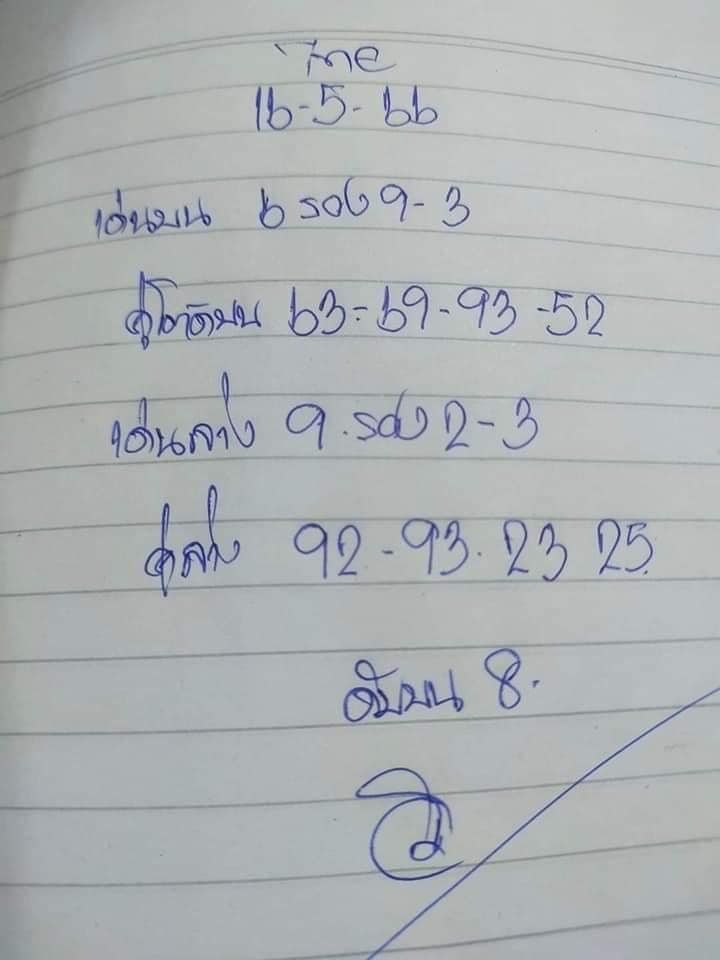 ไทย
16-5-66
เด่นบน 6 รอง 9-3
คู่โต๊ดบน 63-69-93-52
เด่นล่าง 9.รอง 2-3
คู่ล่าง 92-93.23 25.
ดับบน 8.